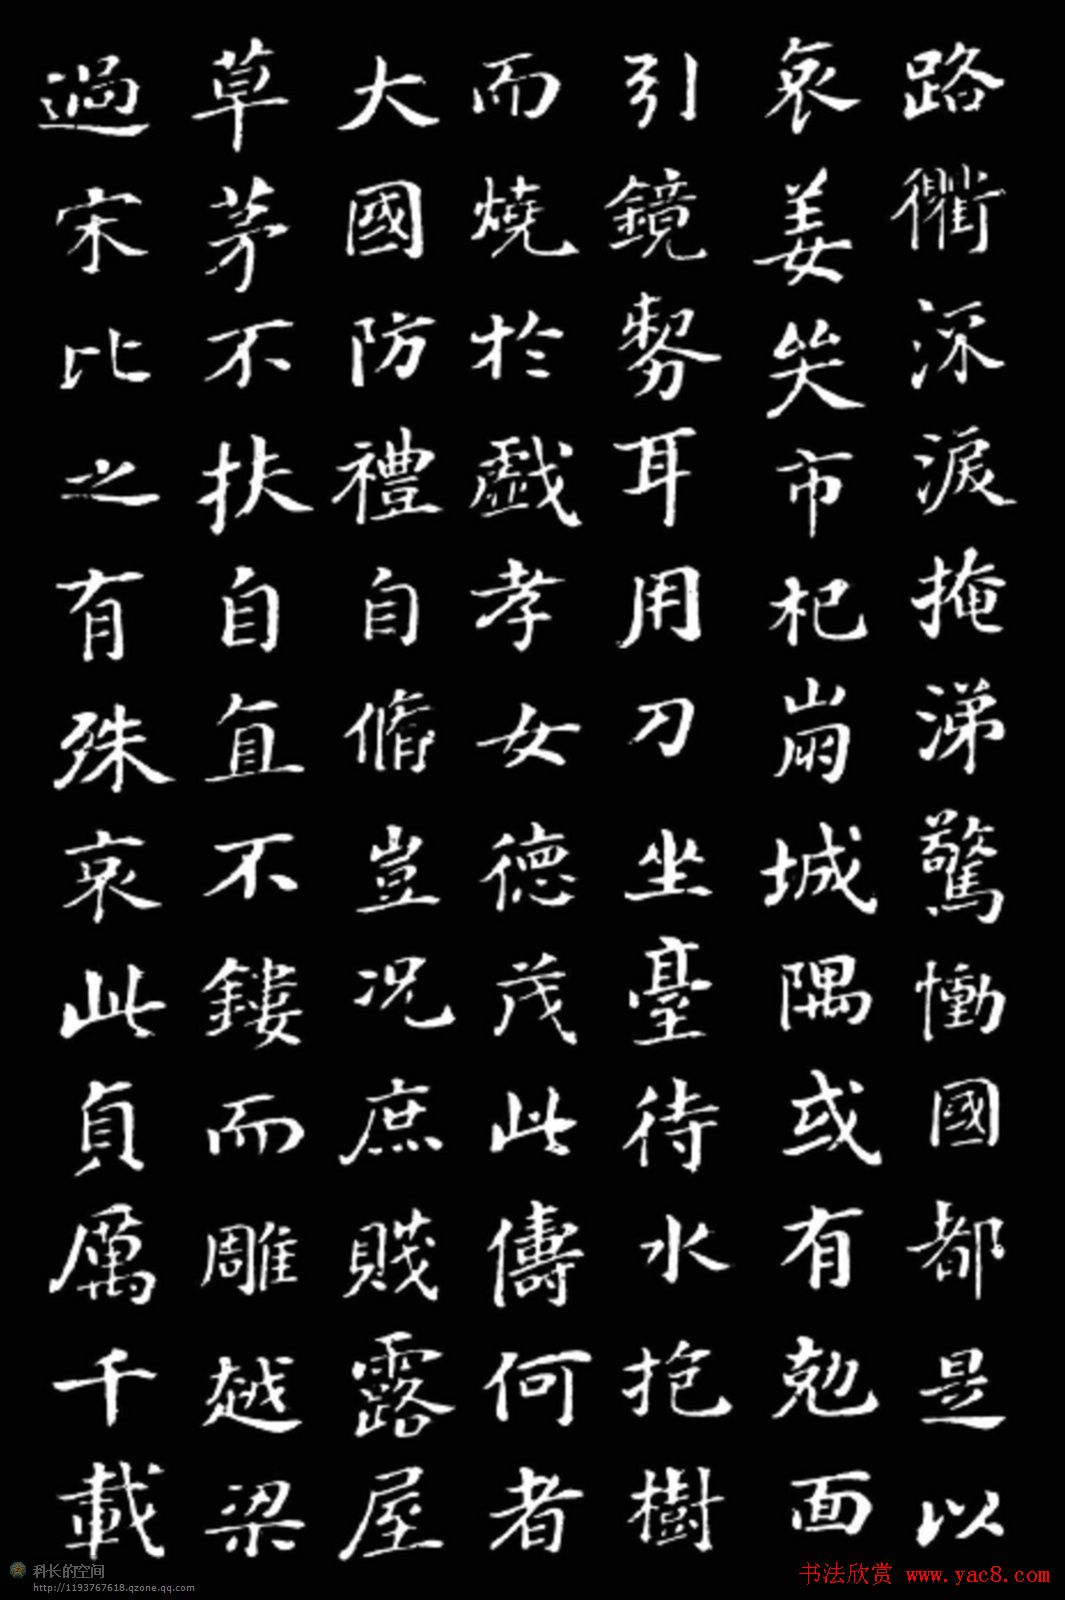 路衢流淚掩涕驚慟國都是以
哀姜哭市杞崩城隅或有尅面
引鏡剺耳用刀坐臺待水抱樹
而燒於戲孝女德茂此儔何者
大國防禮自脩豈況庶賤露屋
草茅不扶自直不鏤而雕越梁
過宋比之有殊哀此貞厲千載
科长的空间
http://1193767618.qzone.qq.com
书法欣赏 www.yac8.com